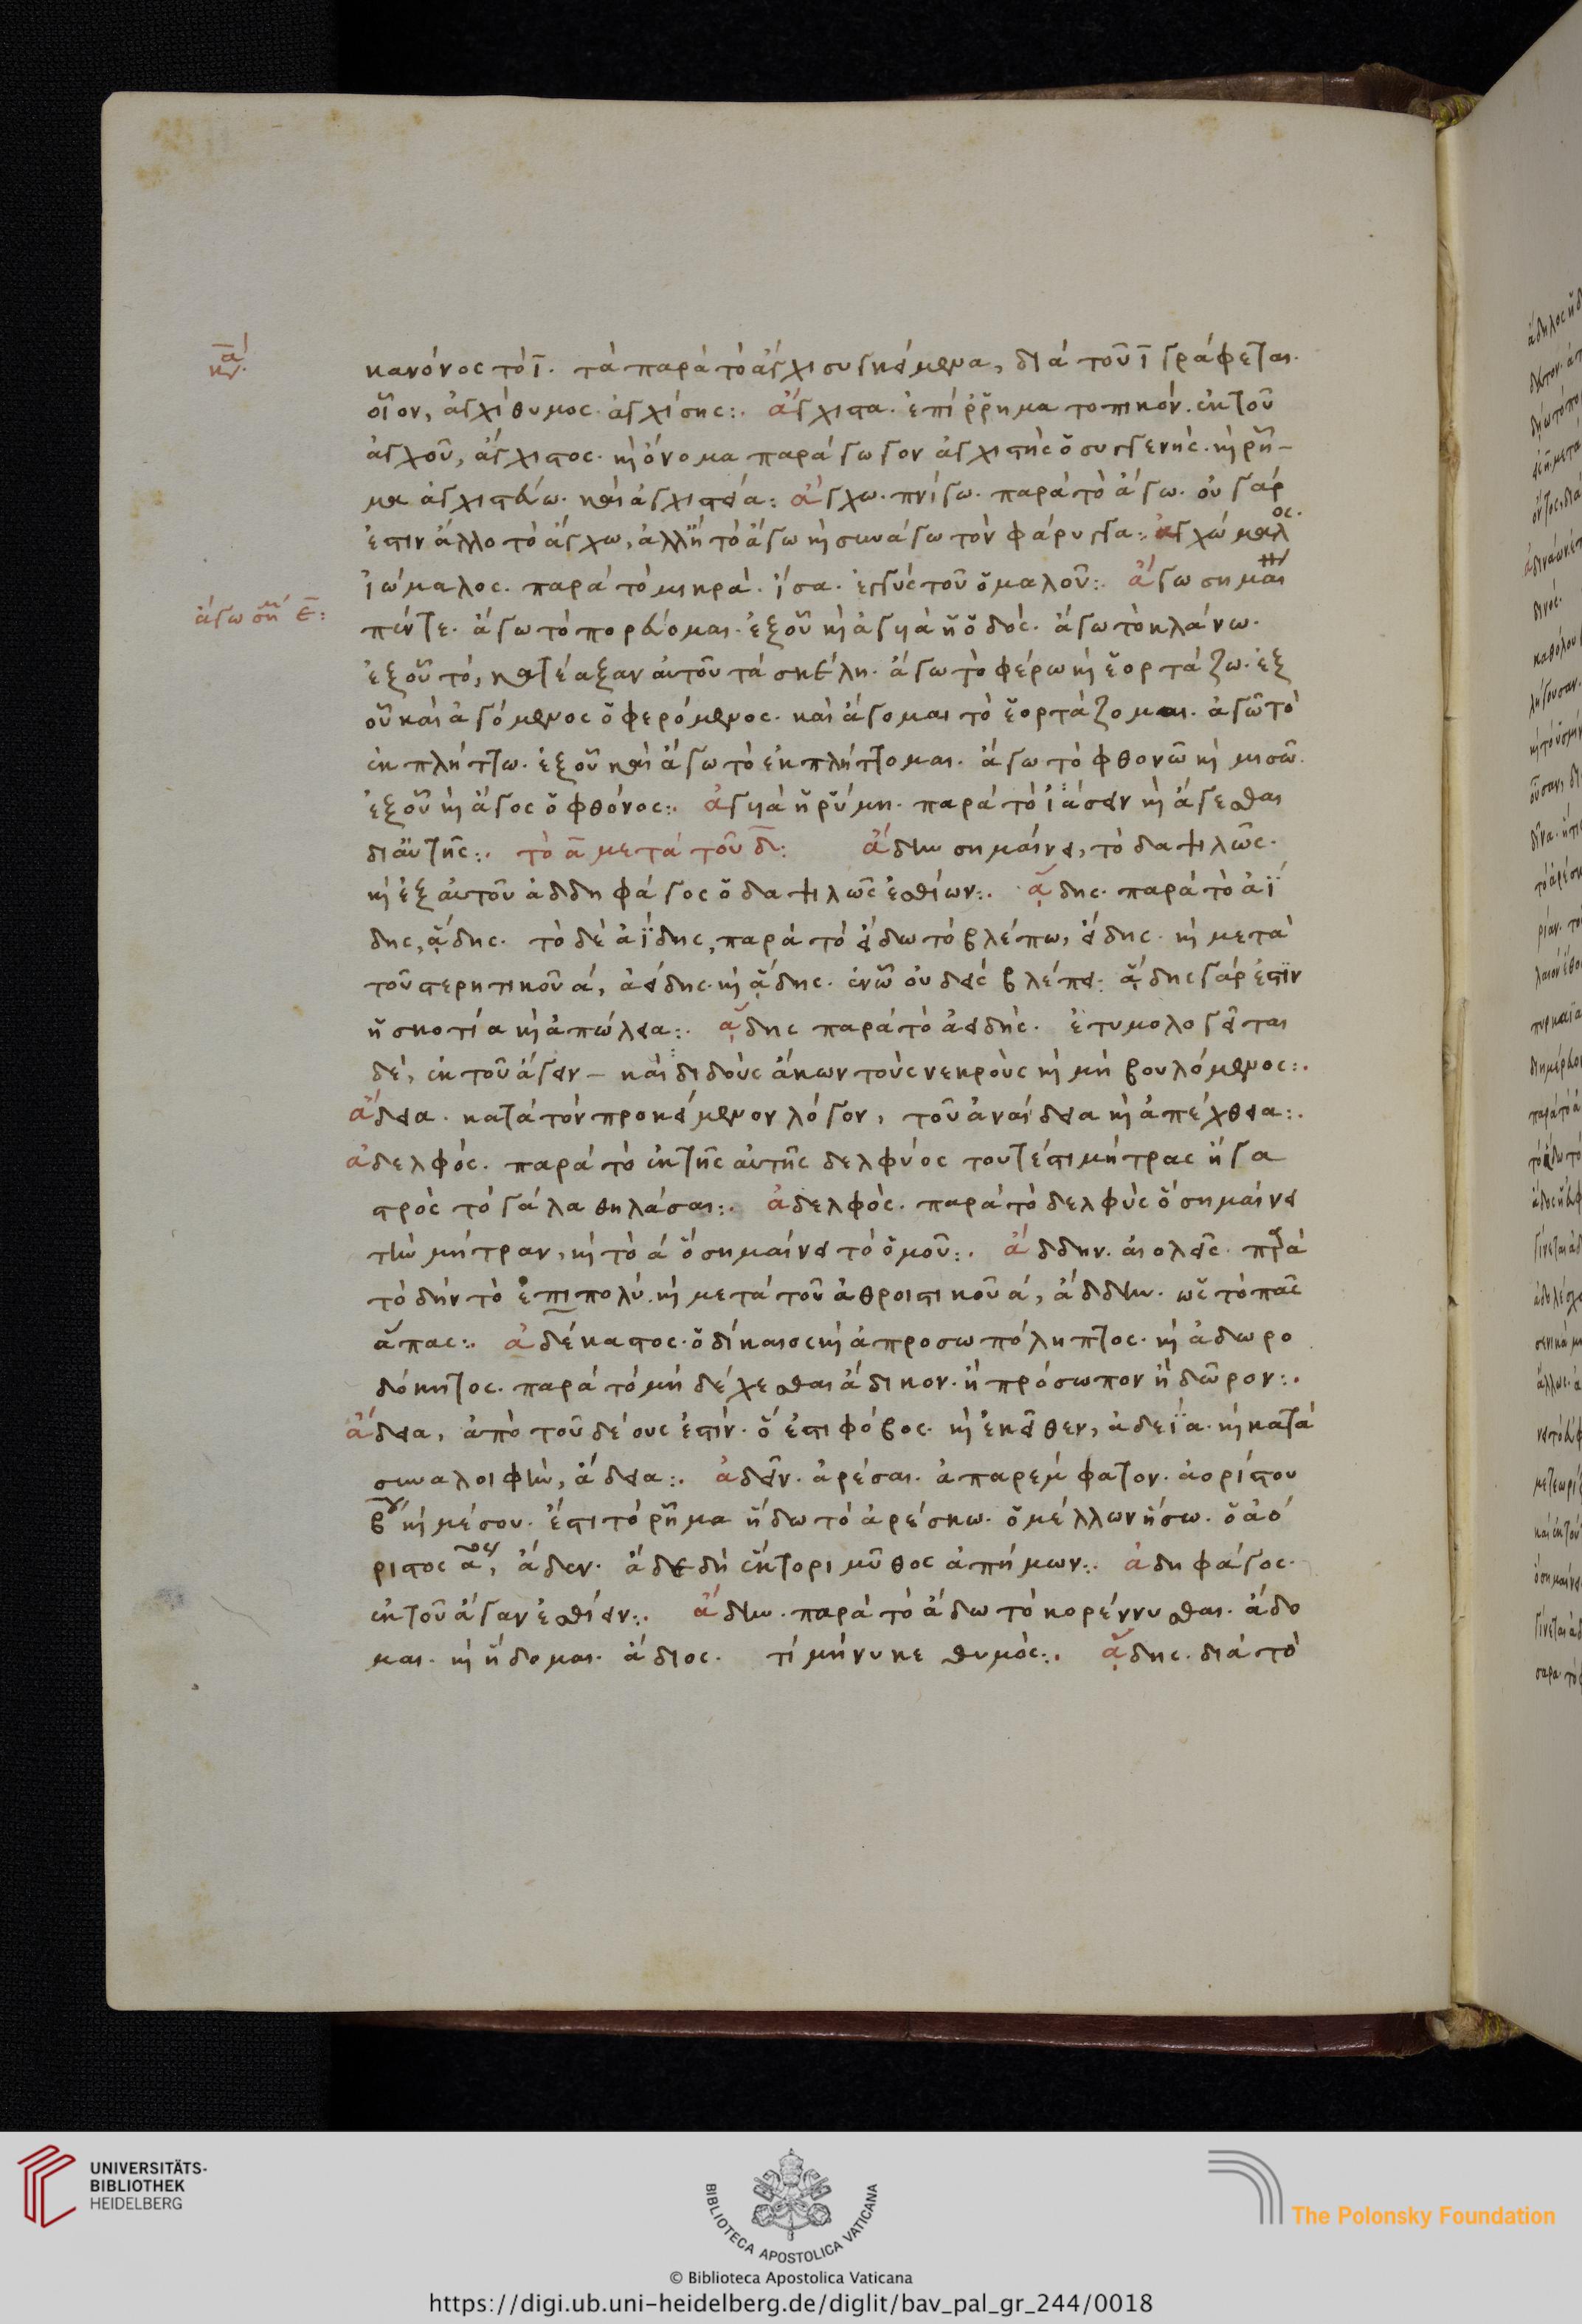 κανόνος τὸ ῑ. τὰ παρὰ τὸ ἄγχι συγκείμενα, διὰ τοῦ ῑ γράφεται.
οἷον, ἀγχίθυμος. ἀγχίσης:. ἄγχιστα. ἐπίρρημα τοπικόν. ἐκ τοῦ
ἀγχοῦ, ἄγχιστος. κὶ ὄνομα παράγωγον ἀγχιστὴς ὁ συγγενής. κὶ ρῆ-
μα ἀγχιστεύω. καὶ ἀγχιστεία: ἄγχω. πνίγω. παρὰ τὸ ἄγω. οὐ γάρ
ἐστιν ἄλλο τὸ ἄγχω, ἀλλ' ἢ τὸ ἄγω κὶ συνάγω τὸν φάρυγγα:. ἀγχώμαλος.
ἰώμαλος. παρὰ τὸ μικρὰ. ἴσα. ἐγγὺς τοῦ ὁμαλοῦ:. ἄγω σημαί
ἄγω σημ ε̄:
πέντε. ἄγω τὸ πορεύομαι. ἐξ οὗ κὶ ἀγυιὰ ἡ ὁδός. ἄγω τὸ κλάνω.
ἐξ οὗ τό, κατέαξαν αὐτοῦ τὰ σκέλη. ἄγω τὸ φέρω κὶ ἑορτάζω. ἐξ
οὗ καὶ ἀγόμενος ὁ φερόμενος. καὶ ἄγομαι τὸ ἑορτάζομαι. ἀγῶ τὸ
ἐκπλήττω. ἐξ οὗ καὶ ἄγω τὸ ἐκπλήττομαι. ἄγω τὸ φθονῶ κὶ μισῶ.
ἐξ οὗ κὶ ἄγος ὁ φθόνος:. ἀγυιὰ ἡ ῥύμη. παρὰ τὸ ἰάσειν κὶ ἄγεσθαι
δι' αὐτῆς:. τὸ ᾱ μετὰ τοῦ δ̄: ἄδην σημαίνει, τὸ δαψιλῶς.
κὶ ἐξ αὐτοῦ ἀδδηφάγος ὁ δαψιλῶς ἐσθίων:. ᾅδης. παρὰ τὸ ἀΐ
δης, ᾅδης. τὸ δὲ ἀΐδης, παρὰ τὸ εἴδω τὸ βλέπω, εἴδης. κὶ μετὰ
τοῦ στερητικοῦ ἀ, ἀείδης. κὶ ᾅδης. ἐν ᾧ οὐδεὶς βλέπει: ᾅδης γάρ ἐστιν
ἡ σκοτία κὶ ἀπώλεια:. ᾅδης παρὰ τὸ ἀειδής. ἐτυμολογεῖται
δέ, ἐκ τοῦ ἄγειν - καὶ διδοὺς ἄκων τοὺς νεκροὺς κὶ μὴ βουλόμενος:.
ἄδεια. κατὰ τὸν προκείμενον λόγον, τοῦ ἀναίδεια κὶ ἀπέχθεια:.
ἀδελφός. παρὰ τὸ ἐκ τῆς αὐτῆς δελφύος τουτέστι μήτρας ἢ γα
στρὸς τὸ γάλα θηλάσαι:. ἀδελφὸς. παρὰ τὸ δελφὺς ὃ σημαίνει
τὴν μήτραν, κὶ τὸ ἀ ὃ σημαίνει τὸ ὁμοῦ:. ἄδδην. αἰολεῖς. παρὰ
τὸ δὴν τὸ ἐπιπολύ. κὶ μετὰ τοῦ ἀθροιστικοῦ ἀ, ἄδδην. ὡς τὸ πᾶς
ἅπας:. ἀδέκαστος. ὁ δίκαιος κὶ ἀπροσωπόληπτος. κὶ ἀδωρο
δόκητος. παρὰ τὸ μὴ δέχεσθαι ἄδικον. ἢ πρόσωπον ἢ δῶρον:.
ἄδεια, ἀπὸ τοῦ δέους ἐστίν. ὅ ἐστι φόβος. κὶ ἐκεῖθεν, ἀδεΐα. κὶ κατὰ
συναλοιφὴν, ἄδεια:. ἀδεῖν. ἀρέσαι. ἀπαρέμφατον. ἀορίστου
β κὶ μέσου. ἔστι τὸ ρῆμα ἥδω τὸ ἀρέσκω. ὁ μέλλων ἥσω. ὁ ἀό
ριστος, ἄδεν. ἄδε δὴ ἕκτορι μῦθος ἀπήμων:. ἀδηφάγος.
ἐκ τοῦ ἄγαν ἐσθίειν:. ἄδην. παρὰ τὸ ἄδω τὸ κορέννυσθαι. ἄδο
μαι. κὶ ἥδομαι. ἄδιος. τί μήνυκε θυμός:. ᾅδης. διὰ τὸ
UNIVERSITÄTS-
BIBLIOTHEK
HEIDELBERG
BIBLIOTECA APOSTOLICA VATICANA
The Polonsky Foundation
© Biblioteca Apostolica Vaticana
https://digi.ub.uni-heidelberg.de/diglit/bav_pal_gr_244/0018